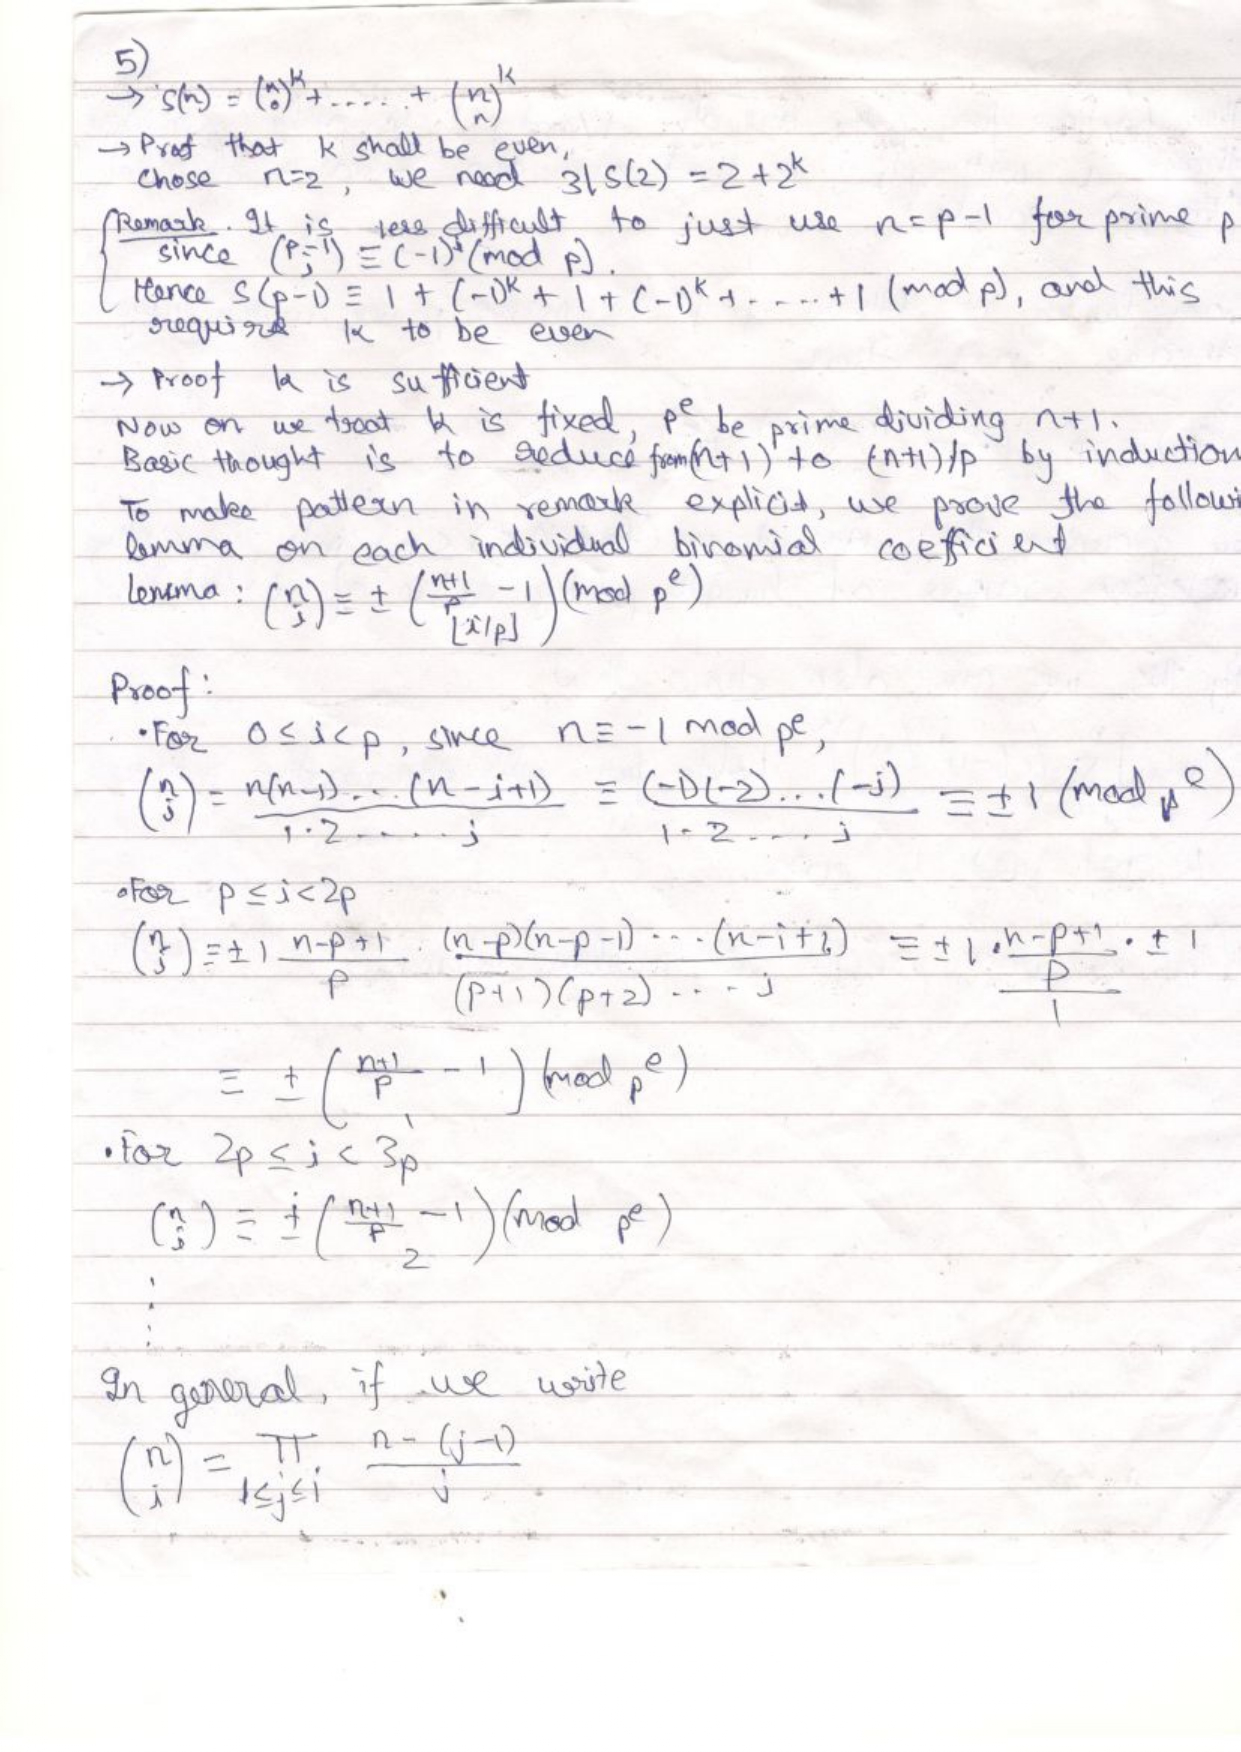 5)
→ S(n) = (n 0)^k + ..... + (n n)^k
→ Proof that k shall be even,
chose n=2, we need 3|S(2) = 2+2^k
Remark. It is less difficult to just use n=p-1 for prime p
since (p-1 i) ≡ (-1)^i (mod p).
Hence S(p-1) ≡ 1 + (-1)^k + 1 + (-1)^k + ..... + 1 (mod p), and this
require k to be even
→ Proof k is sufficient
Now on we treat k is fixed, p^e be prime dividing n+1.
Basic thought is to reduce from (n+1) to (n+1)/p by induction
To make pattern in remark explicit, we prove the followi
lemma on each individual binomial coefficient
lemma : (n i) ≡ ± ((n+1)/p - 1 ⌊i/p⌋) (mod p^e)
Proof :
• For 0 ≤ i < p, since n ≡ -1 mod p^e,
(n i) = n(n-1)...(n-i+1) / 1·2.....i ≡ (-1)(-2)...(-i) / 1·2....i ≡ ±1 (mod p^e)
• For p ≤ i < 2p
(n i) ≡ ±1 (n-p+1)/p · (n-p)(n-p-1)....(n-i+1) / (p+1)(p+2)....i ≡ ±1 · ((n-p+1)/p)/1 · ±1
≡ ± ((n+1)/p - 1 1) (mod p^e)
• For 2p ≤ i < 3p
(n i) ≡ ± ((n+1)/p - 1 2) (mod p^e)
⋮
In general, if we write
(n i) = ∏ 1≤j≤i (n-(j-1))/j